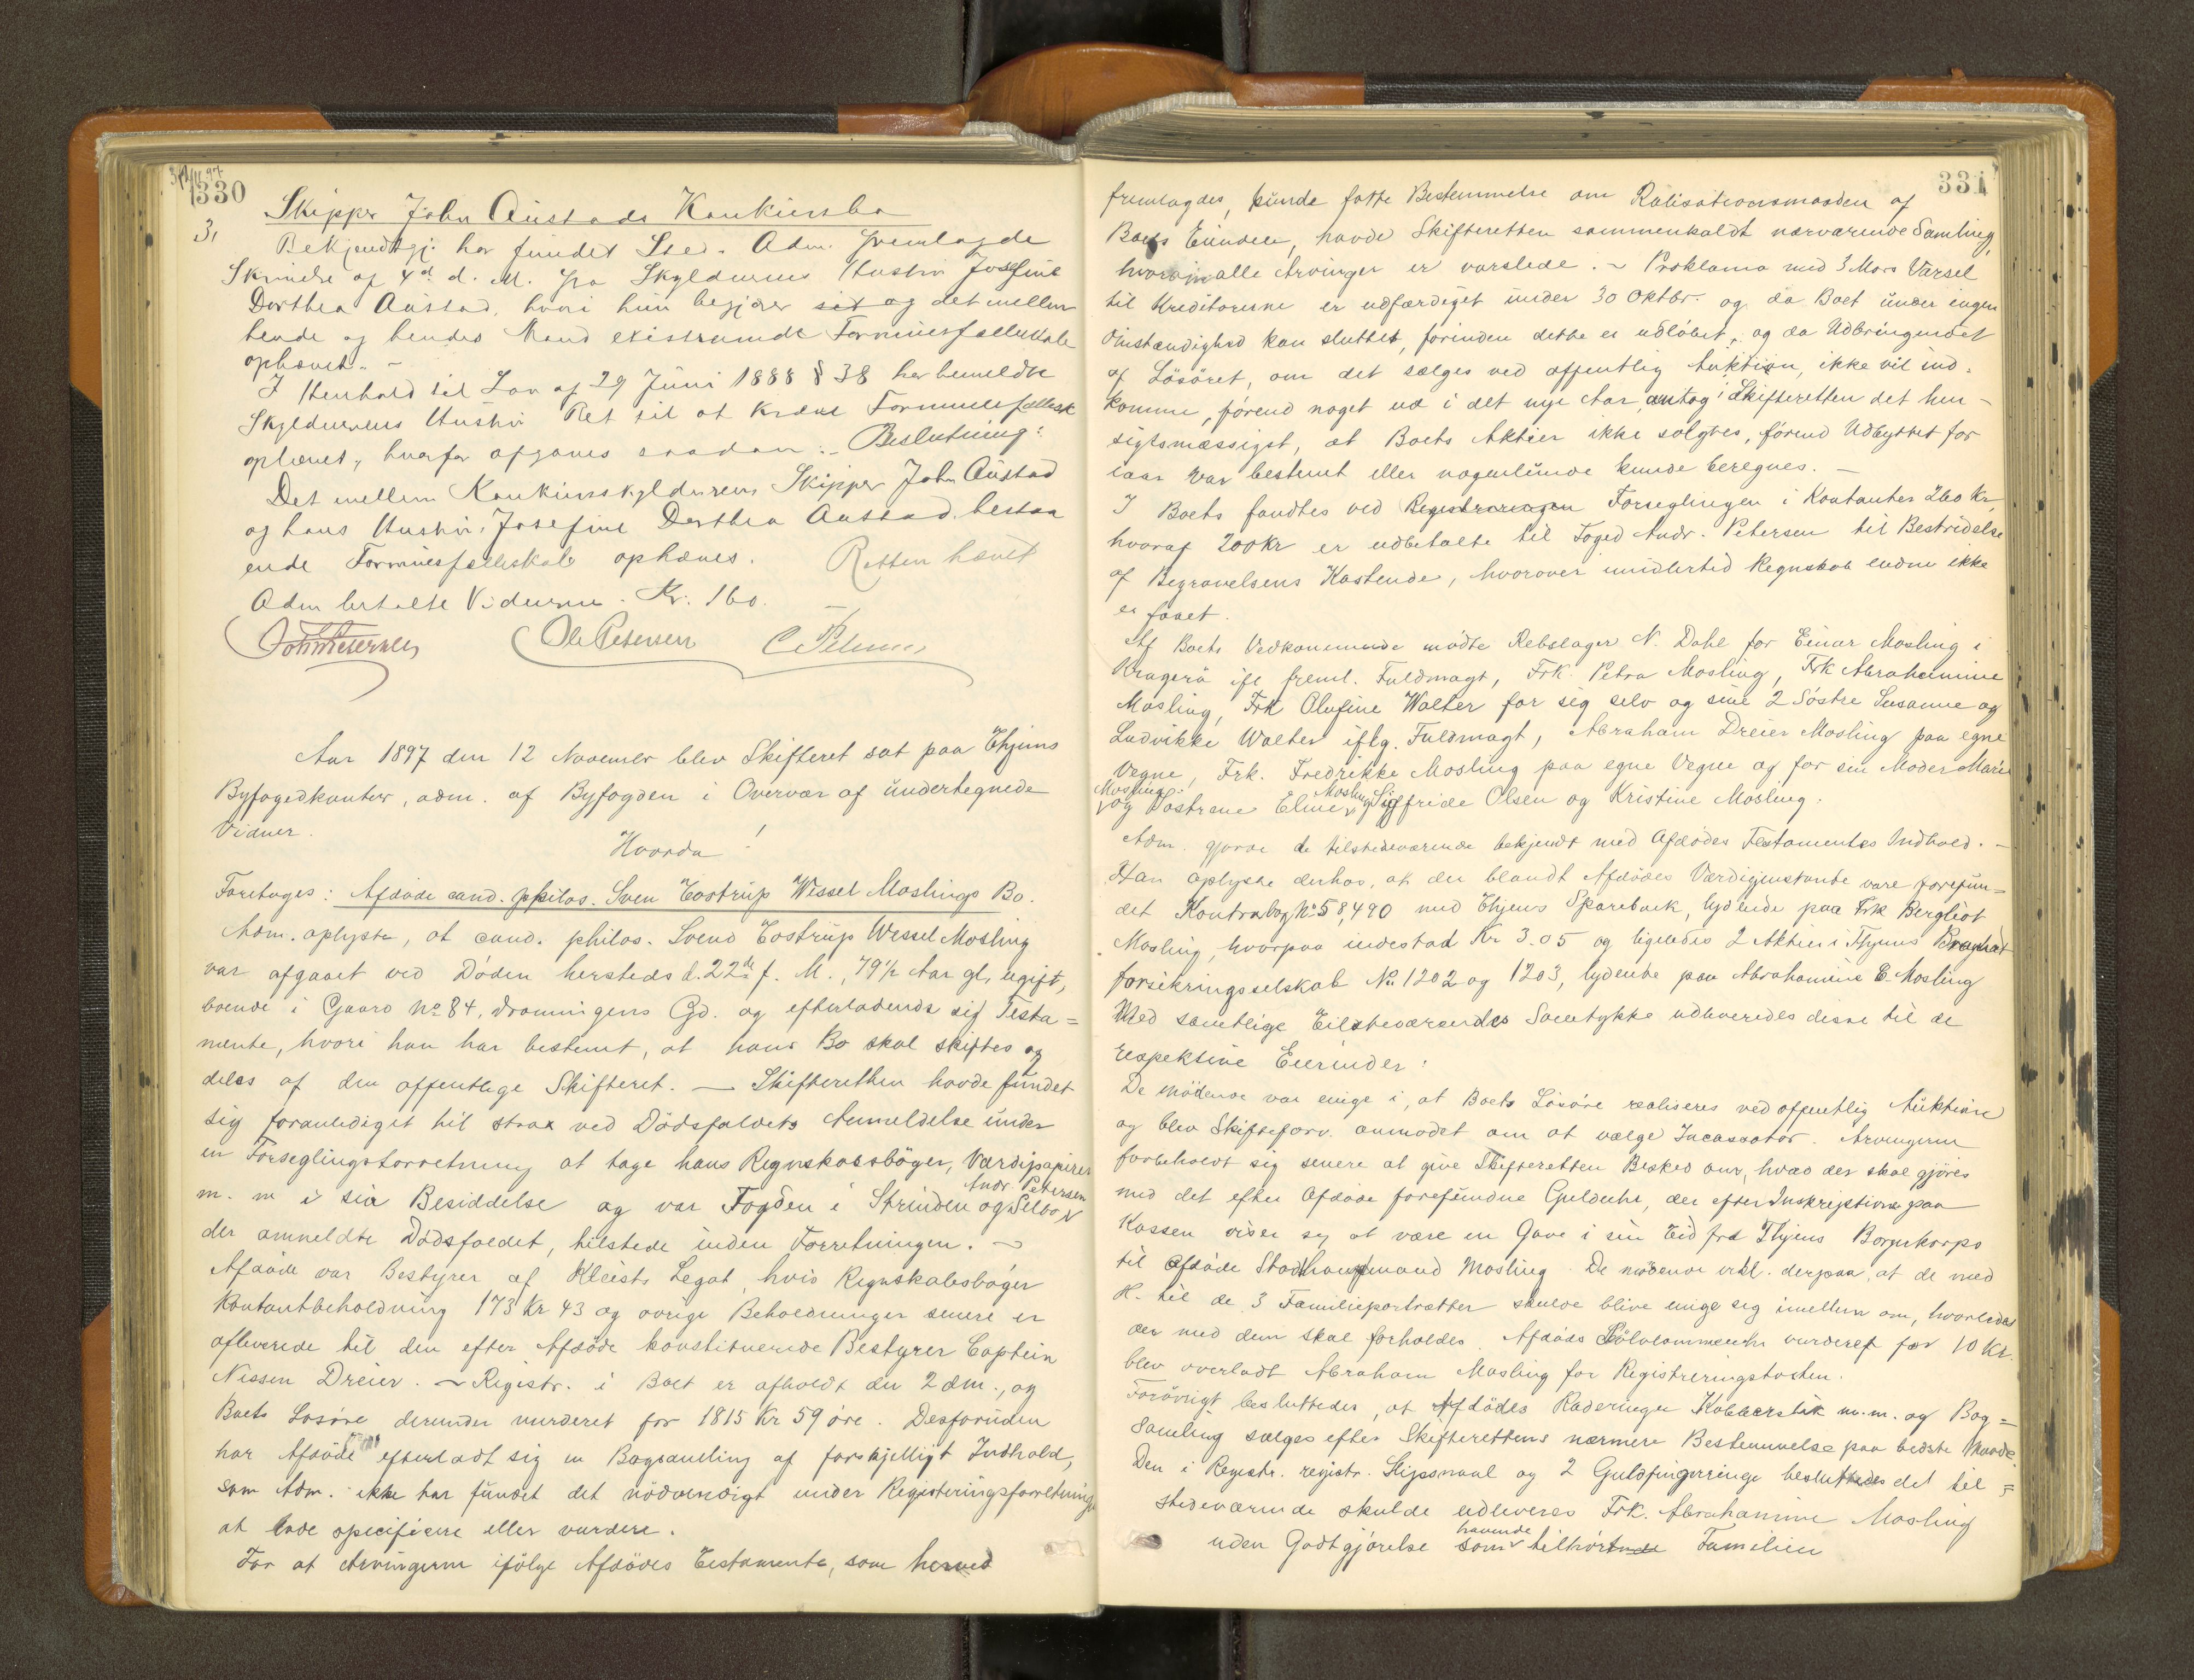 330
3,
Skipper John Austads Konkursbo
Bekjendtgj. har fundet Sted. Adm. fremlagde
Skrivelse af 4d d. M. fra Skyldnerens Hustru Josefine
Dorthea Austad, hvori hun begjærer sit og det mellem
hende og hendes Mand existerende Formuesfællesskab
ophævet. -
I Henhold til Lov af 29 Juni 1888 § 38 har bemeldte
Skyldnerens Hustru Ret til at kræve Formuesfællesk
ophævet, hvorfor afgaves saadan: - Beslutning:
Det mellem Konkursskyldneren Skipper John Austad
og hans Hustru, Josefine Dorthea Austad bestaa
ende Formuesfællesskab ophæves. Retten hævet
Adm betalte Vidnerne. Kr. 1 60.
Ole Petersen C Petersen
Aar 1897 den 12 November blev Skifteret sat paa Thjems
Byfogedkontor, adm. af Byfogden i Overvær af undertegnede
Vidner.
Hvorda!
Foretages: Afdøde cand. philos. Sven Tostrup Wessel Moslings Bo.
Adm. oplyste, at cand. philos. Svend Tostrup Wessel Mosling
var afgaaet ved Døden hersteds d. 22de f. M., 79½ Aar gl, ugift,
boende i Gaard No 84, Dronningens Gd. og efterladende sig Testa=
mente, hvori han har bestemt, at hans Bo skal skiftes og
deles af den offentlige Skifteret. — Skifteretten havde fundet
sig foranlediget til strax ved Dødsfaldets Anmeldelse under
en Forseglingsforretning at tage hans Regnskabsbøger, Værdipapirer
m. m i sia Besiddelse og var Fogden i Strinden og Selbo Andr. Petersen
der anmeldte Dødsfaldet, tilstede under Forretningen. —
Afdøde var Bestyrer af Kleists Legat, hvis Regnskabsbøger
Kontantbeholdning 173 Kr 43 og øvrige Beholdninger senere er
afleverede til den efter Afdøde konstituerede Bestyrer Captein
Nissen Dreier. — Registr. i Boet er afholdt den 2 dm., og
Boets Løsøre derunder vurderet for 1815 Kr 59 øre. Desforuden
har Afdøde efterladt sig en Bogsamling af forskjelligt Indhold,
som Adm. ikke har fundet det nødvendigt under Registreringsforretningen
at lade specificere eller vurdere.
For at Arvingerne ifølge Afdødes Testamente, som herved
331
fremlagdes, kunde fatte Bestemmelse om Realisationsmaaden af
Boets Eiendele, havde Skifteretten sammenkaldt nærværende Samling,
hvorom alle Arvinger er varslede. - Proklama med 3 Mdrs Varsel
til Kreditorerne er udfærdiget under 30 Oktbr. og da Boet under ingen
Omstændighed kan sluttes, førinden dette er udløbet, og da Udbringendet
af Løsøret, om det sælges ved offentlig Auktion, ikke vil ind-
komme, førend noget ud i det nye Aar, antog Skifteretten det hen-
sigtsmæssigst, at Boets Aktier ikke solgtes, førend Udbyttet for
iaar var bestemt eller nogenlunde kunde beregnes. —
I Boets fandtes ved Registreringen Forseglingen i Kontanter 260 Kr,
hvoraf 200 Kr er udbetalte til Foged Andr. Petersen til Bestridelse
af Begravelsens Kostende, hvorover imidlertid Regnskab endnu ikke
er faaet.
Af Boets Vedkommende mødte Rebslager N. Dahl for Einar Mosling i
Kragerø ifl freml. Fuldmagt, Frk. Petra Mosling, Frk Abrahamine
Mosling, Frk Olufine Walter for sig selv og sine 2 Søstre Susanne og
Ludvikke Walter iflg. Fuldmagt, Abraham Dreier Mosling paa egne
Vegne, Frk. Fredrikke Mosling paa egne Vegne og for sin Moder Marie
Mosling og Søstrene Eline Mosling, Sigfride Olsen og Kristine Mosling.
Adm. gjorde de tilstedeværende bekjendt med Afdødes Testamentes Indhold. -
Han oplyste derhos, at der blandt Afdødes Værdigjenstande vare forefun=
det Kontrabog No 58,490 med Thjems Sparebank, lydende paa Frk Bergliot
Mosling, hvorpaa indestod Kr 3.05 og ligeledes 2 Aktier i Thjems Brand
forsikringsselskab No 1202 og 1203, lydende paa Abrahamine E. Mosling
Med samtlige Tilstedeværendes Samtykke udleveredes disse til de
respektive Eierinder.
De mødende var enige i, at Boets Løsøre realiseres ved offentlig Auktion
og blev Skifteforv. anmodet om at vælge Incassator. Arvingerne
forbeholdt sig senere at give Skifteretten Besked om, hvad der skal gjøres
med det efter Afdøde forefundne Gulduhr, der efter Inskription paa
Kassen viser sig at være en Gave i sin Tid fra Thjems Borgerkorps
til afdøde Stadthauptmand Mosling. De mødende erkl. derpaa, at de med
H. til de 3 Familieportrætter skulde blive enige sig imellem om, hvorledes
der med dem skal forholdes. Afdødes Sølvlommeuhr vurderet for 10 Kr.
blev overladt Abraham Mosling for Registreringstaxten.
Forøvrigt besluttedes, at Afdødes Raderinger Kobberstik m.m. og Bog=
samling sælges efter Skifterettens nærmere Bestemmelse paa bedste Maade
Den i Registr. registr. Slipsnaal og 2 Guldfingerringe besluttedes det til=
stedeværende skulde udleveres Frk. Abrahamine Mosling
uden Godtgjørelse som havende tilhørt Familien